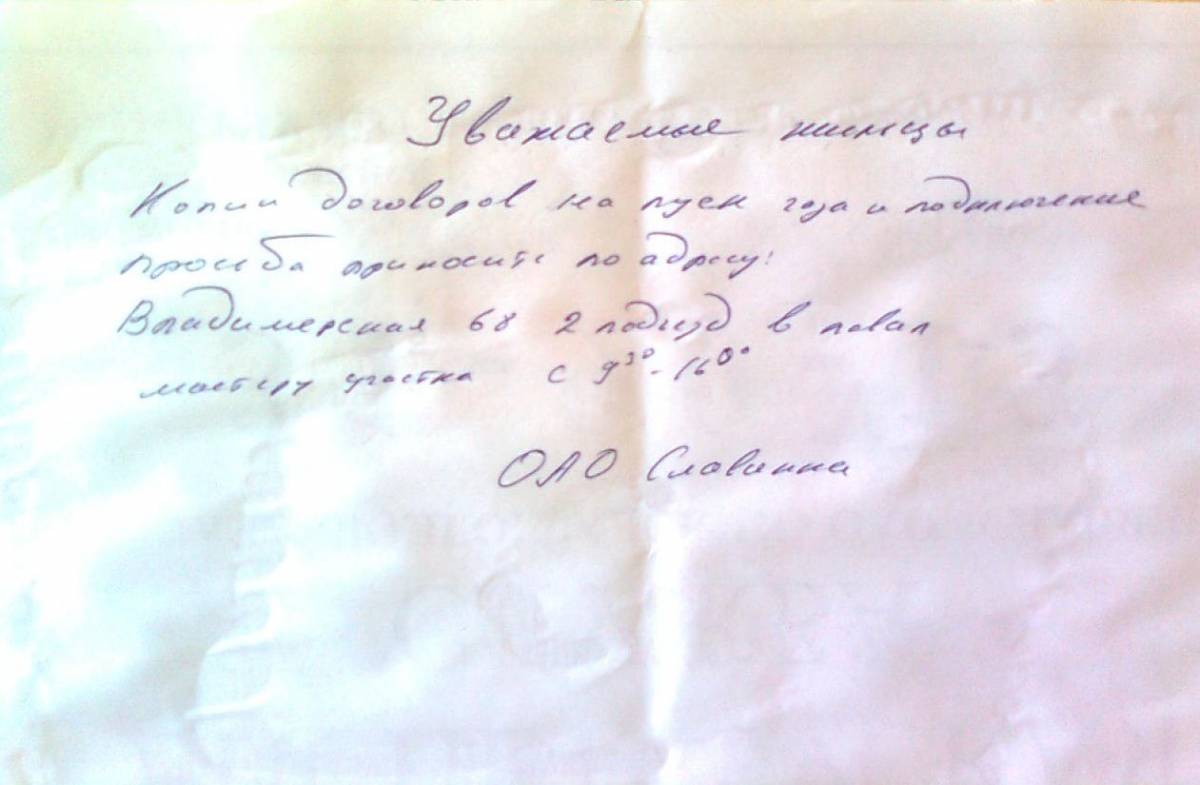 Уважаемые жильцы
Копии договоров на пуск газа и подключение
просьба приносить по адресу:
Владимерская 68 2 подъезд в повал
мастеру участка с 9³⁰-16⁰⁰
ОАО Славянка